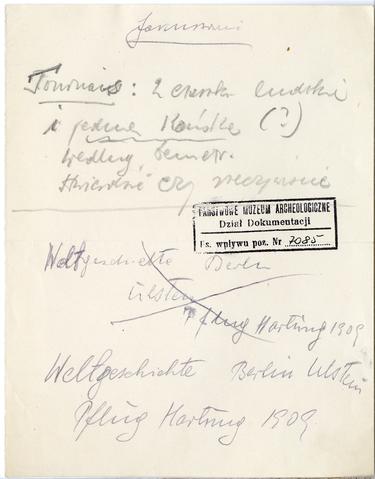 Tournais: 2 czaszki ludzkie
i jedna końska (?)
według Demetr.
stwierdzić czy rzeczywiście
PAŃSTWOWE MUZEUM ARCHEOLOGICZNE
Dział Dokumentacji
Ks. wpływu poz. Nr 7085
Weltgeschichte Berlin
Ulstein
Pflug Hartung 1909
Weltgeschichte Berlin Ulstein
Pflug Hartung 1909